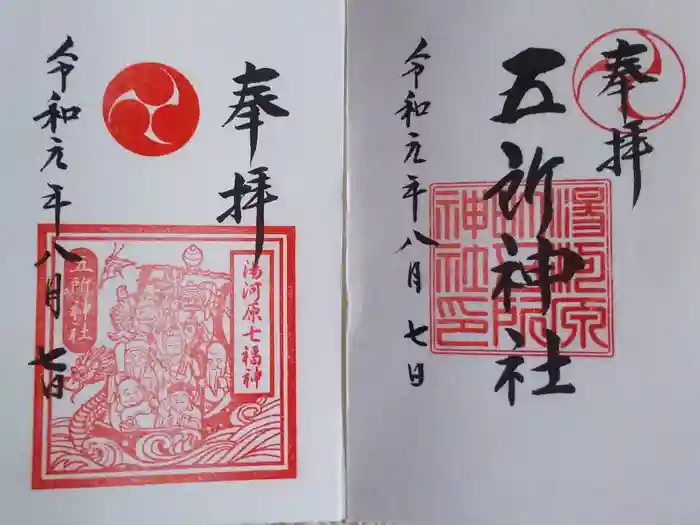 奉拝
湯河原七福神
五所神社
令和元年八月七日
奉拝
五所神社
湯河原
五所神社印
令和元年八月七日